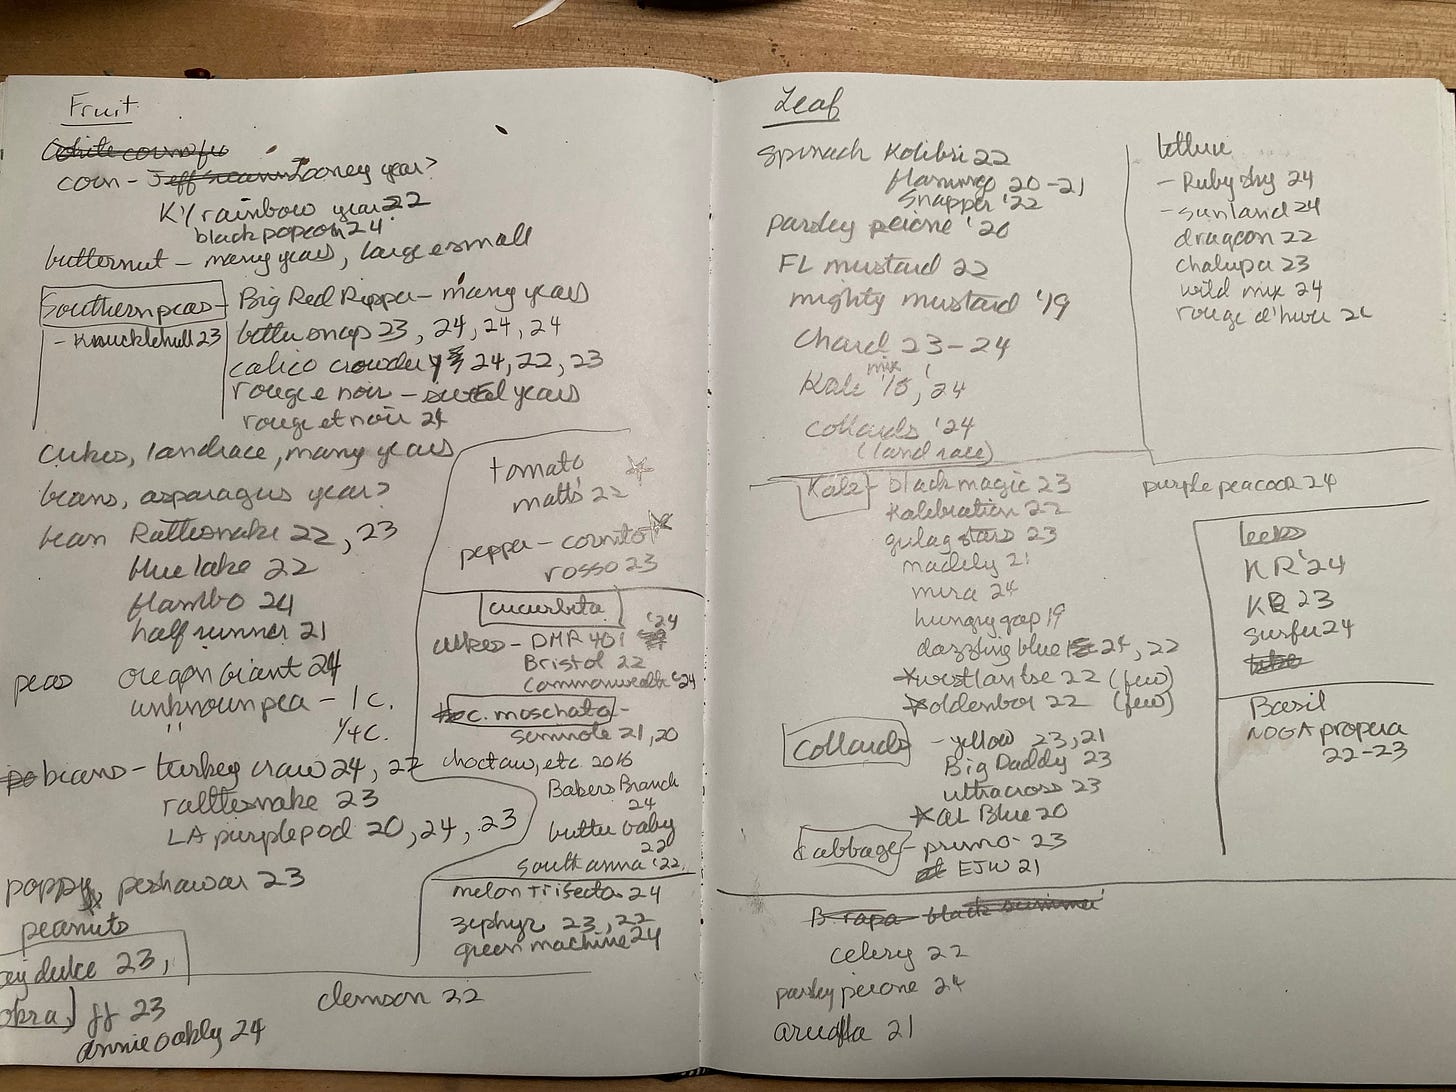 Fruit
corn - Looney year?
KY rainbow year 22
black popcorn 24
butternut - many years, large & small
Southern peas - Big Red Ripper - many years
- Knucklehull 23
bettersnap 23, 24, 24, 24
calico crowder 24, 22, 23
rouge e noir - years
rouge et noir 24
cukes, landrace, many years
beans, asparagus year?
bean Rattlesnake 22, 23
blue lake 22
flambo 24
half runner 21
peas oregon Giant 24
unknown pea - 1 c.
" 1/4 c.
beans - turkey craw 24, 22
rattlesnake 23
LA purplepod 20, 24, 23
poppy, peshawar 23
peanuts
dulce 23,
okra, ff 23
annie oakly 24
clemson 22
tomato
matts 22
pepper - cornito
rosso 23
cucurbita
cukes - DMR 401 '24
Bristol 22
commonwealth '24
C. moschata -
seminole 21, 20
choctaw, etc. 2016
Bakers Branch
24
butter baby
22
South anna '22
melon Trifecta 24
zephyr 23, 22
green machine 24
Leaf
spinach Kolibri 22
flamingo 20-21
Snapper '22
parsley peione '20
FL mustard 22
mighty mustard '19
Chard 23-24
mix
Kale '18, '24
Collards '24
(land race)
lettuce
- Ruby sky 24
- sunland 24
dragoon 22
chalupa 23
wild mix 24
rouge d'hiver
Kale - black magic 23
Kalebration 22
gulag stars 23
madely 21
mira 24
hungry gap 19
dazzling blue 24, 22
*westlantse 22 (few)
*oldenbor 22 (few)
purple peacock 24
leeks
KR '24
KR 23
surfer 24
Basil
NOGA propera
22-23
Collards - yellow 23, 21
Big Daddy 23
ultracross 23
*AL Blue 20
Cabbage - primo - 23
EJW 21
B. rapa black summer
celery 22
parsley peione 24
arugula 21